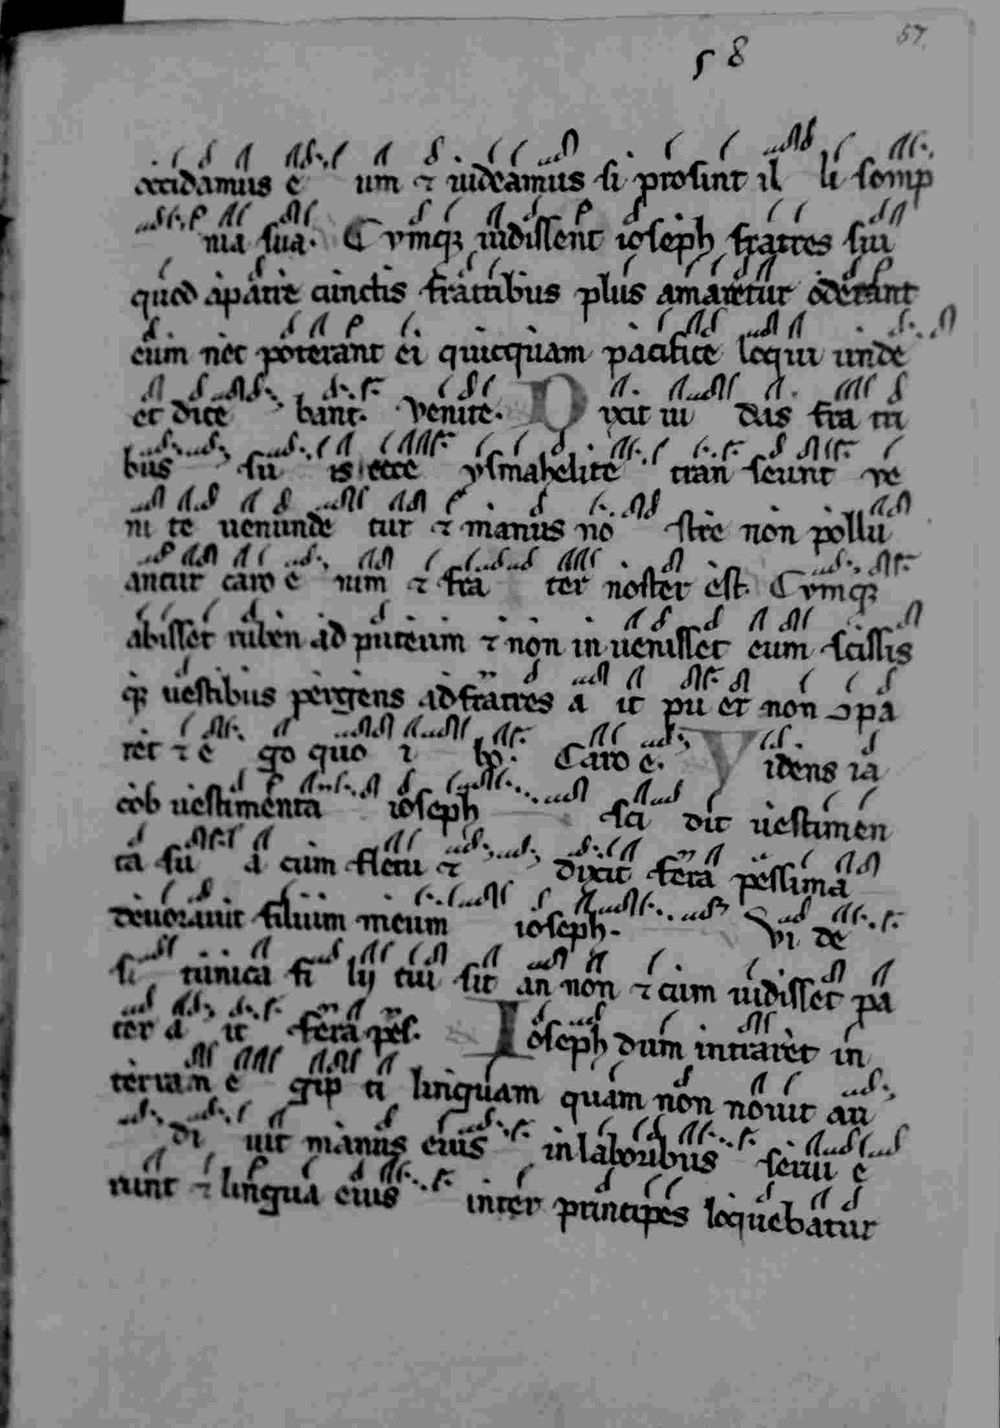 57.
58
occidamus e um ⁊ uideamus si prosint il li somp
nia sua. Cvmq; uidissent ioseph fratres sui
quod apatre cunctis fratribus plus amaretur oderant
eum nec poterant ei quicquam pacifice loqui unde
et dice bant. Venite. Dixit iu das fra tri
bus su is ecce ysmahelite tran seunt ve
ni te uenunde tur ⁊ manus no stre non pollu
antur caro e nim ⁊ fra ter noster est. Cvmq;
abisset ruben ad puteum ⁊ non in uenisset eum scissis
q; uestibus pergens ad fratres a it pu er non ɔpa
ret ⁊ e go quo i bo. Caro e. Videns ia
cob uestimenta ioseph sci dit uestimen
ta su a cum fletu ⁊ dixit fera pessima
deuorauit filium meum ioseph. Vi de
si tunica fi lij tui sit an non ⁊ cum uidisset pa
ter a it fera pes. Ioseph dum intraret in
terram e gip ti linguam quam non nouit au
di uit manus eius in laboribus serui e
runt ⁊ lingua eius inter principes loquebatur